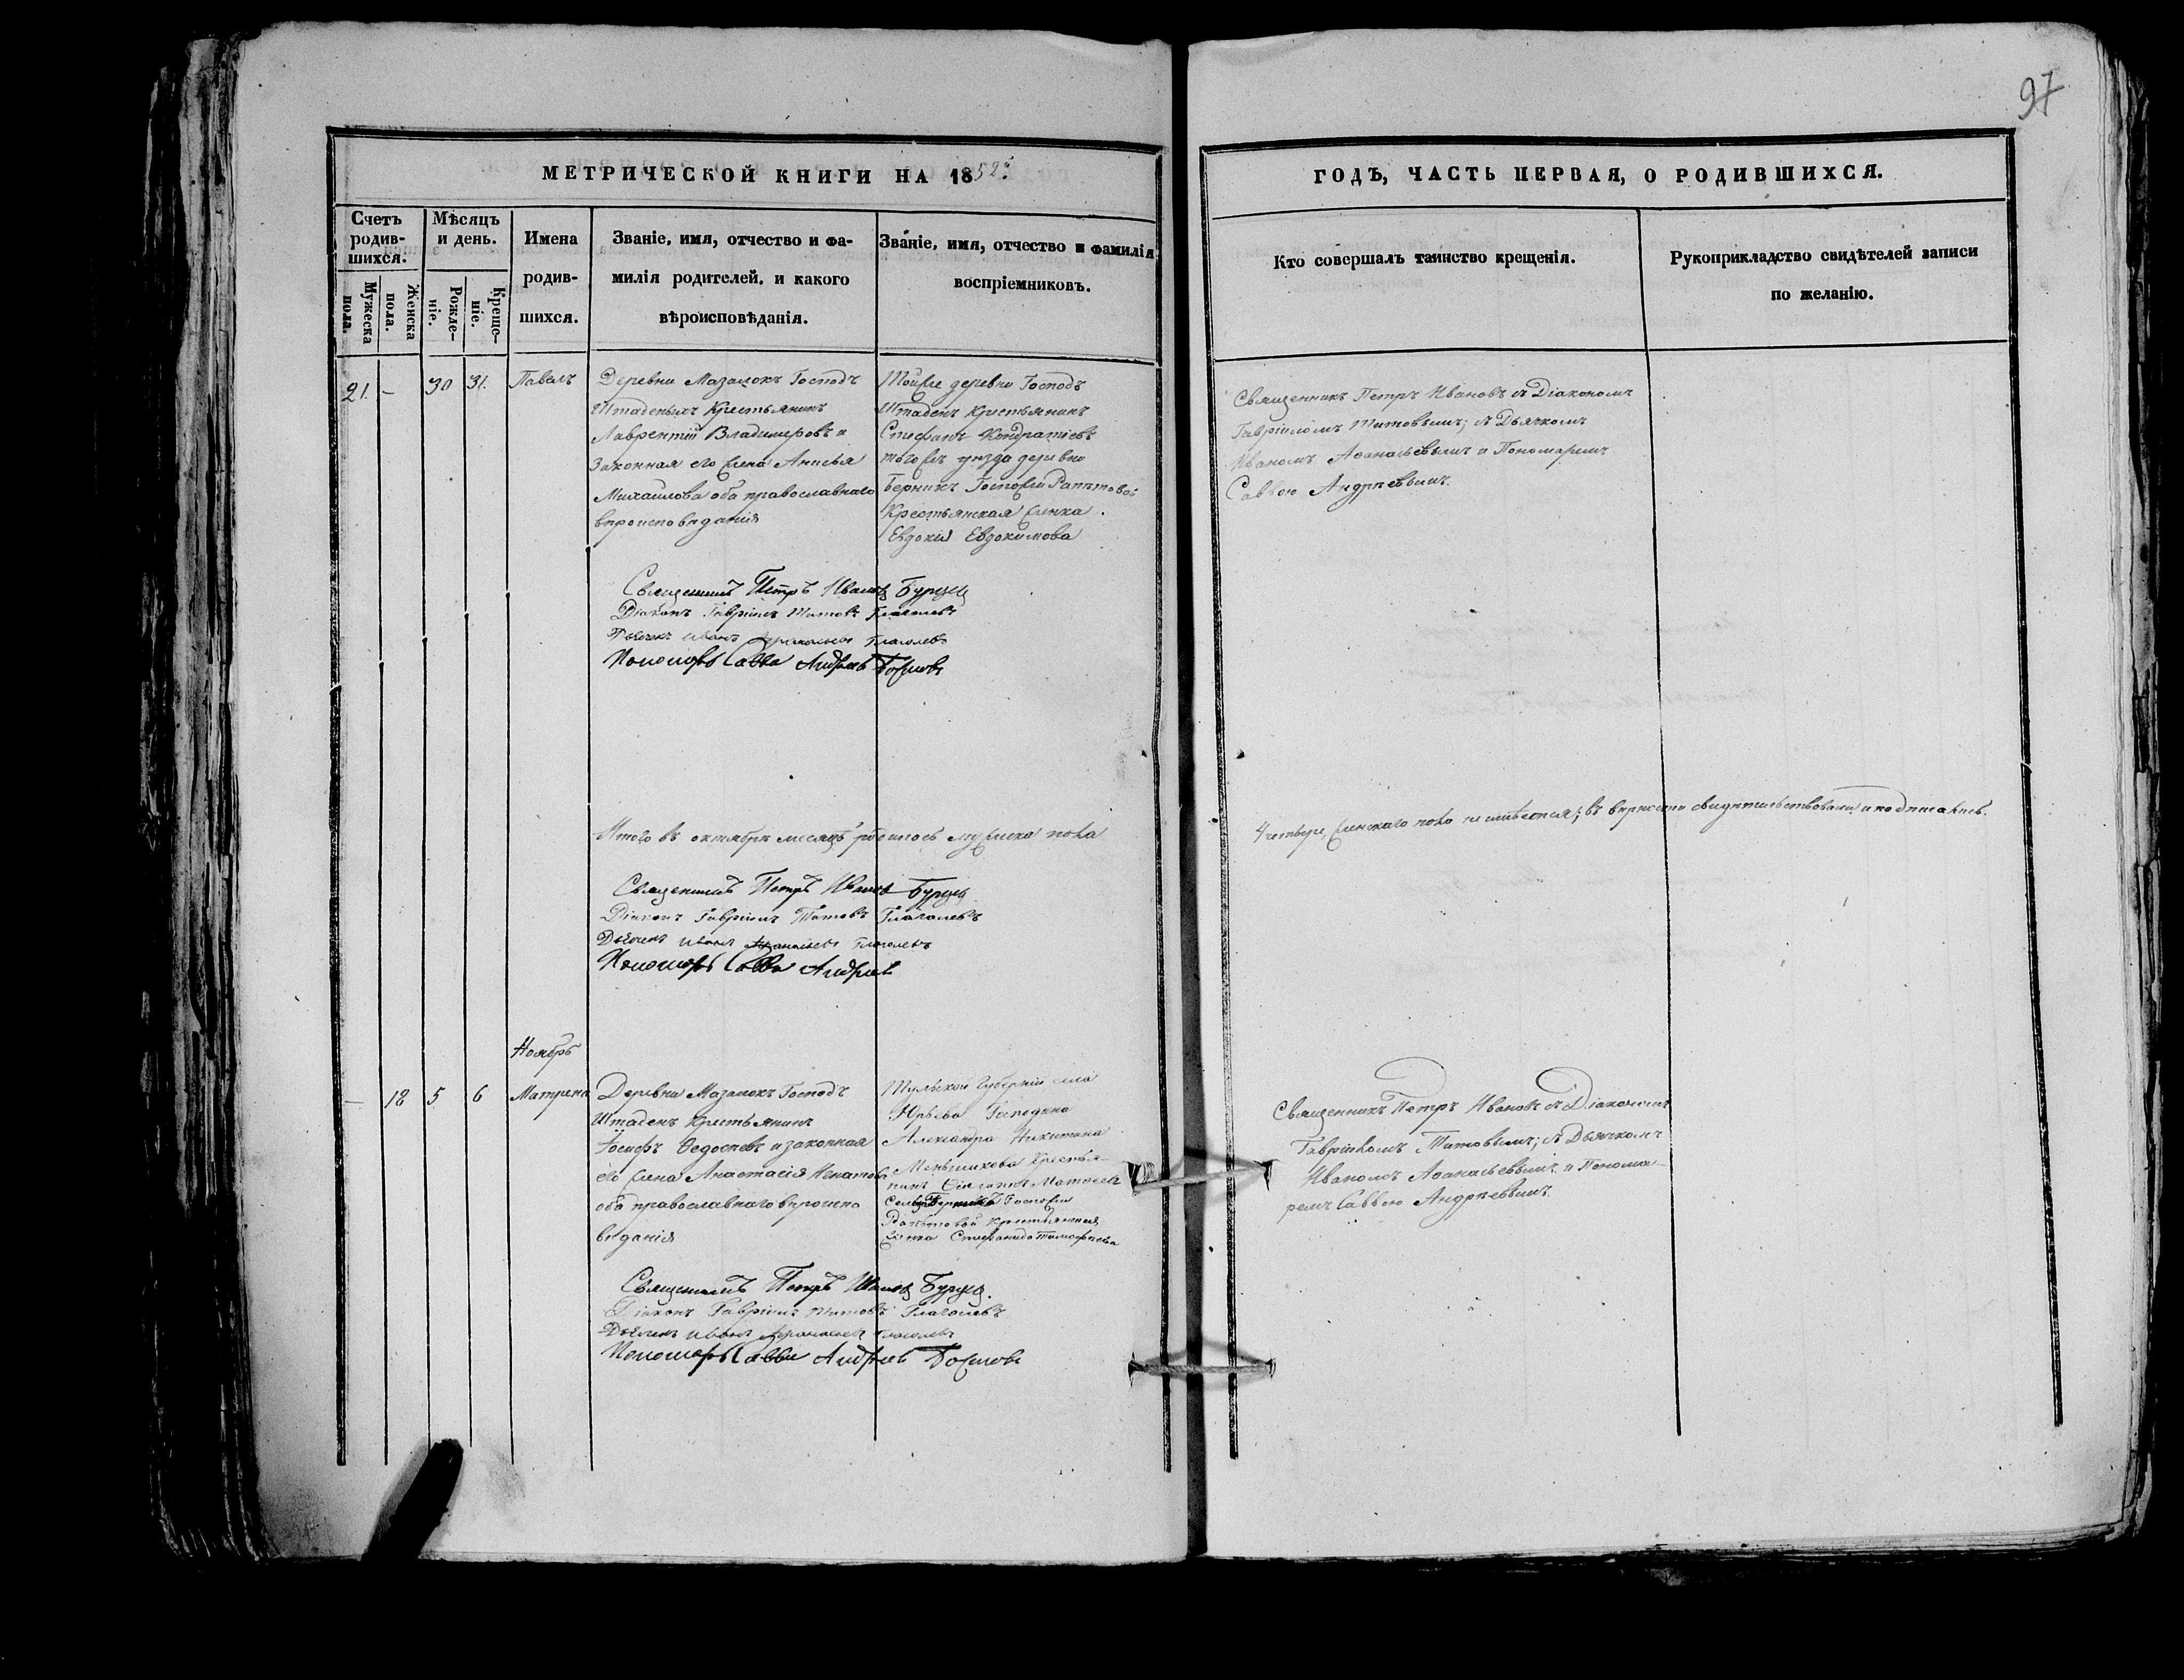 97
МЕТРИЧЕСКОЙ КНИГИ НА 1852й
ГОДЪ, ЧАСТЬ ПЕРВАЯ, О РОДИВШИХСЯ.
Счетъ родив-шихся.
Мужеска пола.
Женска пола.
Мѣсяцъ и день.
Рожде-ніе.
Креще-ніе.
Имена родив-шихся.
Званіе, имя, отчество и фа-
милія родителей, и какого
вѣроисповѣданія.
Званіе, имя, отчество и фамилія
воспріемниковъ.
Кто совершалъ таинство крещенія.
Рукоприкладство свидѣтелей записи
по желанію.
21. – 30 31. Павелъ
Деревни Мазалокъ Господъ
Штаденыхъ Крестьянинъ
Лаврентій Владимеровъ и
Законная его жена Анисья
Михайлова оба православнаго
вѣроисповѣданія
Тойже деревни Господъ
Штаденъ Крестьянинъ
Стефанъ Кондратіевъ
тогожъ уѣзда деревни
Берникъ Госпожи
Крестьянская женка
Евдокія Евдокимова
Священникъ Петръ Ивановъ съ Діакономъ
Гавріиломъ Титовымъ; съ Дьячкомъ
Иваномъ Аѳанасьевымъ и Пономаремъ
Саввою Андрѣевымъ.
Священникъ Петръ Ивановъ Бурцевъ
Діаконъ Гавріилъ Титовъ Глаголевъ
Дьячекъ Иванъ Афанасьевъ Глаголевъ
Пономарь Савва Андреевъ
Итого въ октябрѣ месяцѣ родилось мужеска пола
Четыре, женскаго пола не имѣется; въ вѣрности свидѣтельствовали и подписались.
Священникъ Петръ Ивановъ Бурцевъ
Діаконъ Гавріилъ Титовъ Глаголевъ
Дьячекъ Иванъ Афанасьевъ Глаголевъ
Пономарь Савва Андреевъ
Ноябрь
– 18 5 6 Матрена
Деревни Мазалокъ Господъ
Штаденъ Крестьянинъ
Іосифъ Ѳедосѣевъ и законная
его жена Анастасія Игнатова
оба православнаго вѣроиспо
вѣданія
Тульской Губерніи села
Юрьева Господина
Александра Никитина
Меньшикова Крестья-
нинъ
Госпожи
Крестьянская
женка Стефанида Тимофѣева
Священникъ Петръ Ивановъ съ Діакономъ
Гавріиломъ Титовымъ; съ Дьячкомъ
Иваномъ Аѳанасьевымъ и Понома-
ремъ Саввою Андрѣевымъ.
Священникъ Петръ Ивановъ Бурцевъ.
Діаконъ Гавріилъ Титовъ Глаголевъ
Дьячекъ Иванъ Афанасьевъ Глаголевъ
Пономарь Савва Андреевъ